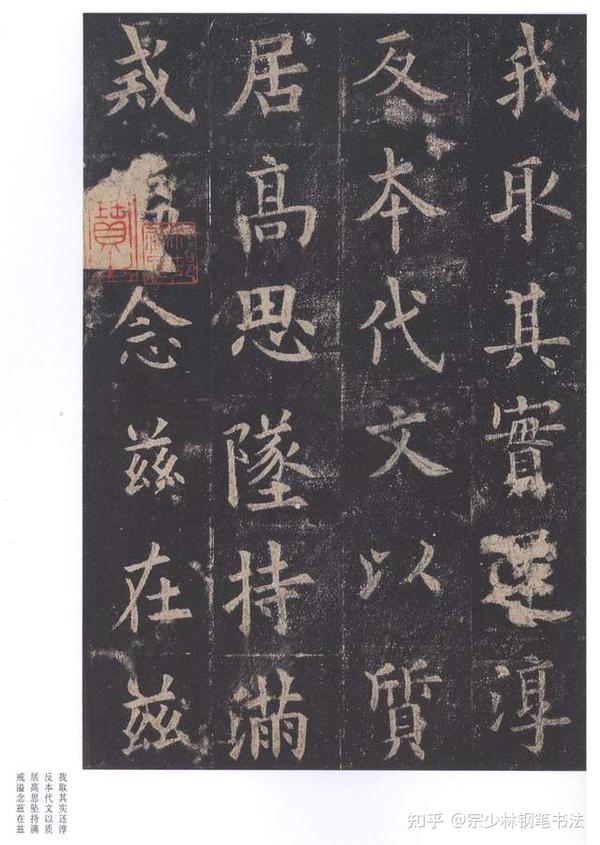 我取其實還淳
反本代文以質
居髙思墜持滿
戒溢念兹在兹
我取其实还淳
反本代文以质
居高思坠持满
戒溢念兹在兹
知乎 @宗少林钢笔书法